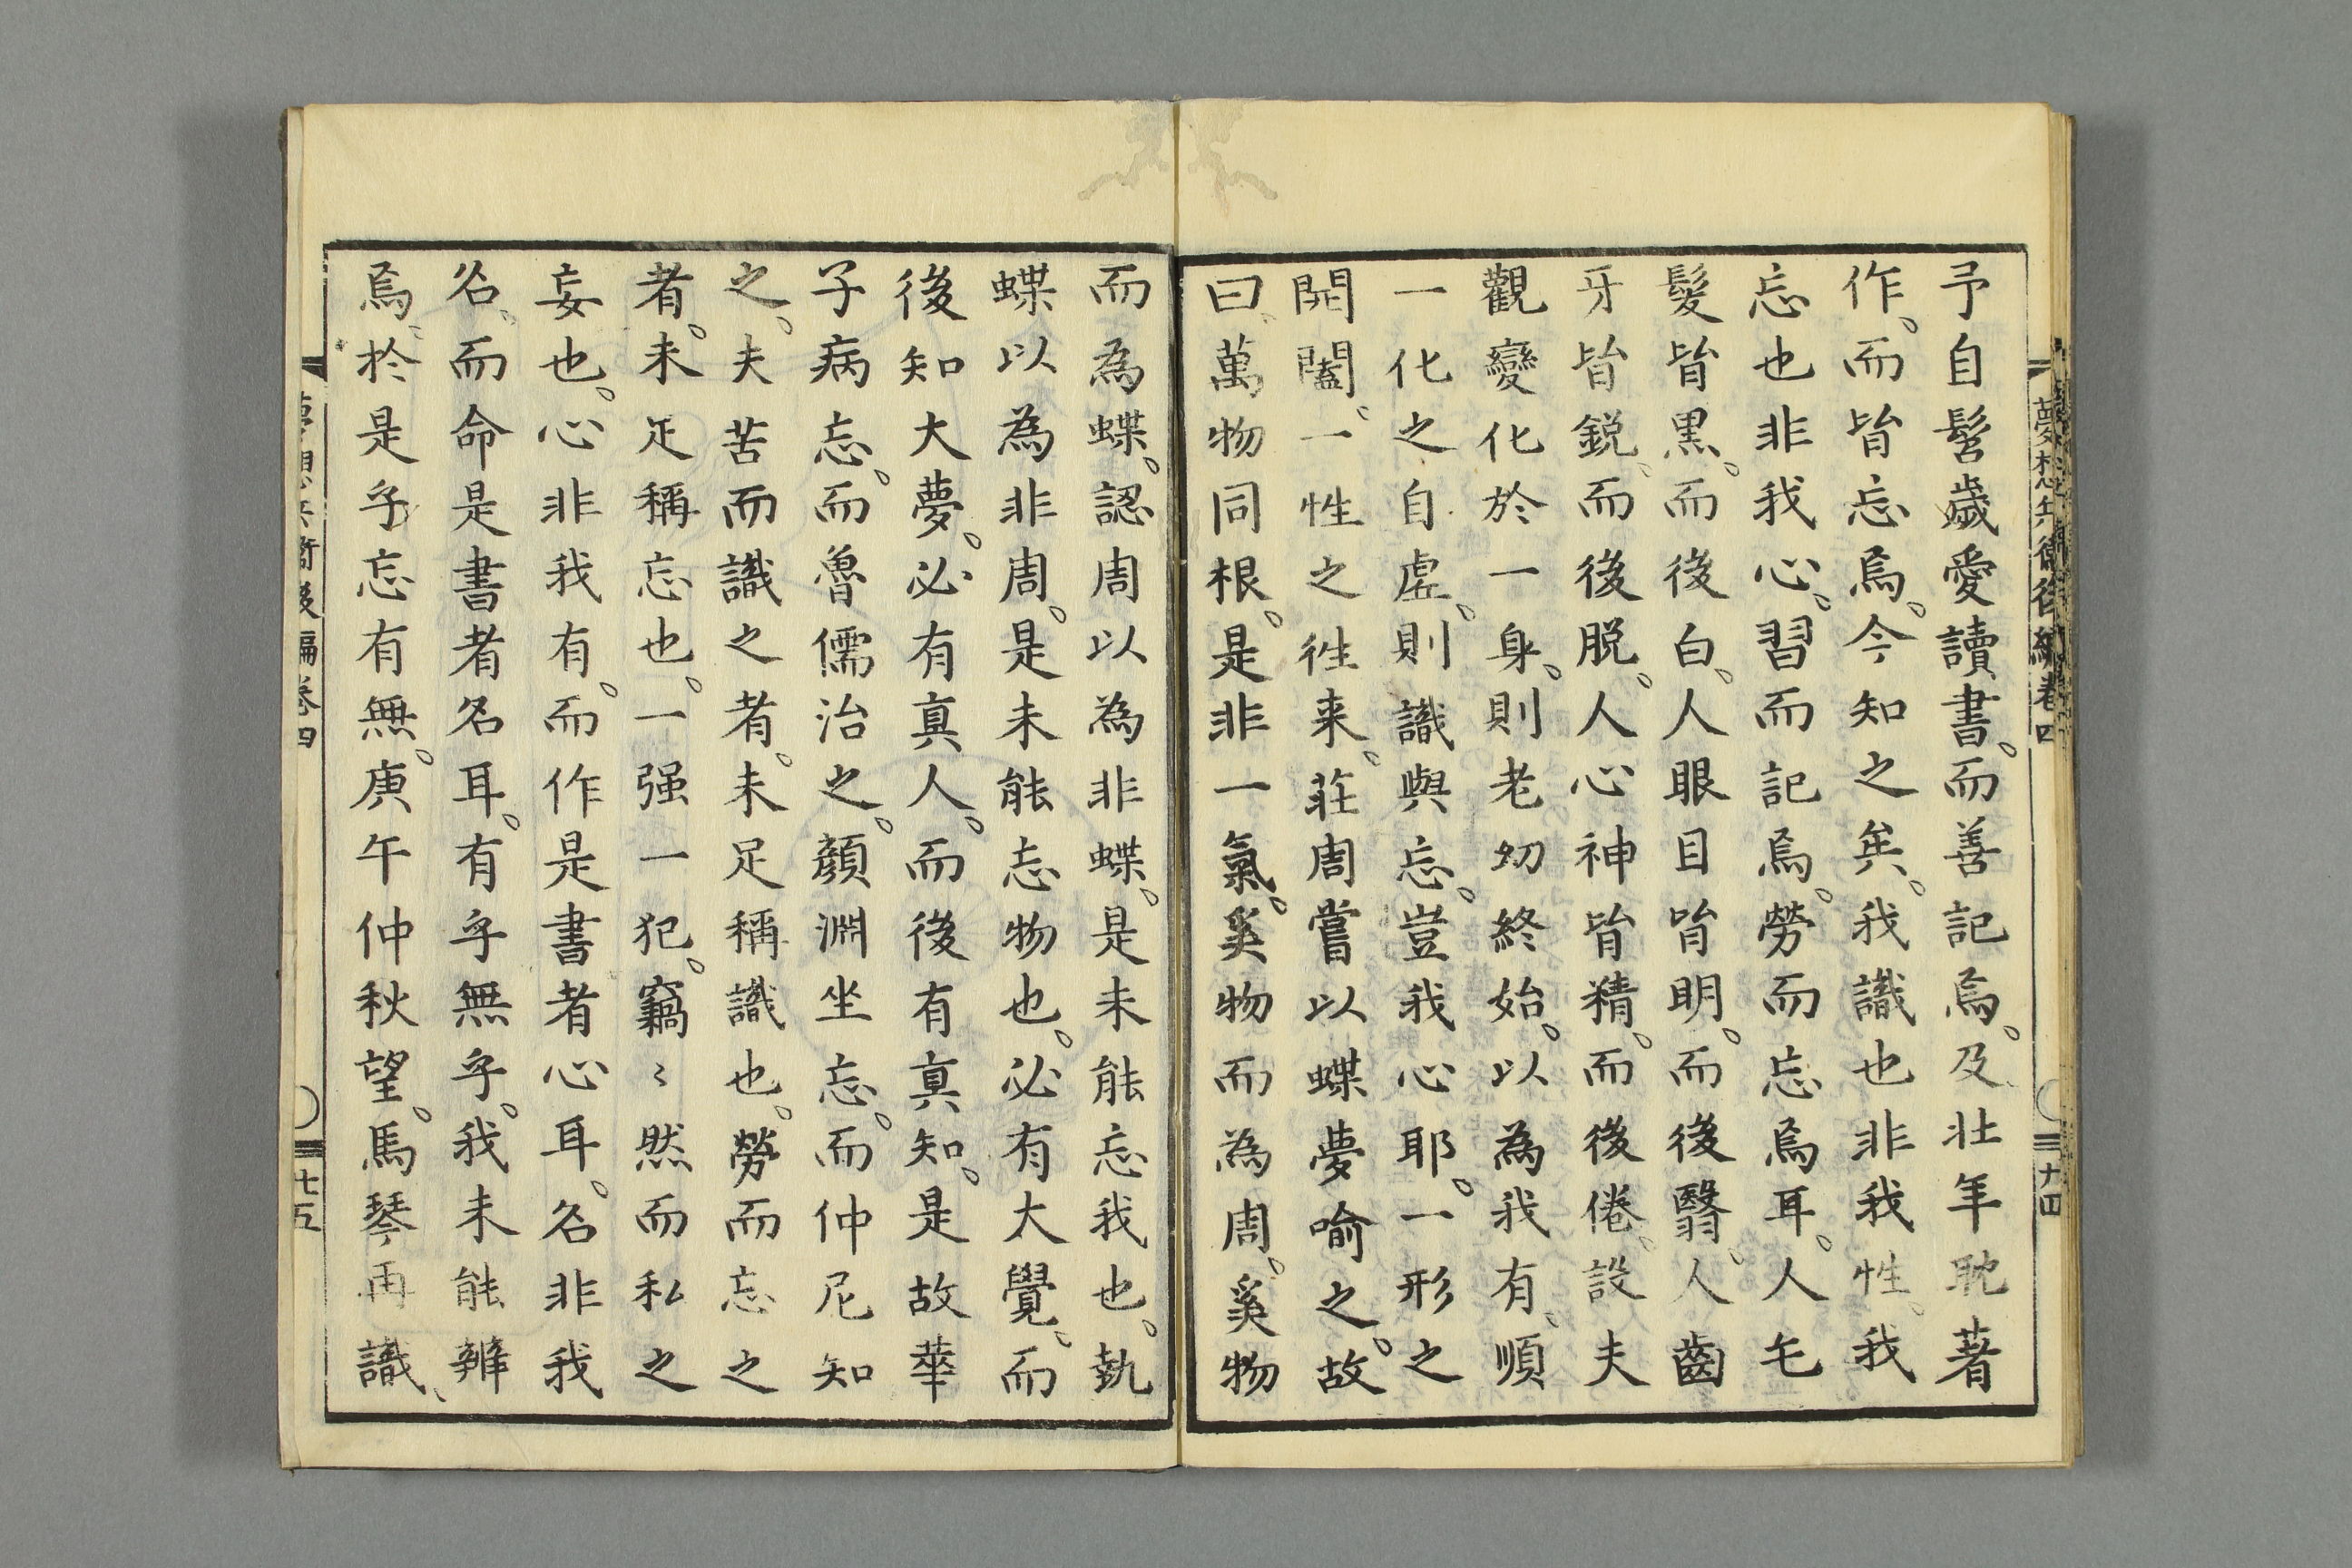 夢想兵衛後編巻四
十四
予自髫歳愛讀書。而善記焉。及壯年耽著
作。而皆忘焉。今知之矣。我識也非我性、我
忘也非我心。習而記焉。勞而忘焉耳。人毛
髮皆黒。而後白、人眼目皆明。而後翳、人齒
牙皆鋭、而後脱、人心神皆精。而後倦、設夫
觀變化於一身、則老幼終始。以為我有、順
一化之自虚。則識與忘。豈我心耶。一形之
開闔、一性之徃来。荘周嘗以蝶夢喻之。故
曰、萬物同根。是非一氣。奚物而為周。奚物
而為蝶。認周以為非蝶。是未能忘我也。執
蝶以為非周。是未能忘物也。必有大覺、而
後知大夢。必有真人。而後有真知。是故華
子病忘。而魯儒治之。顔淵坐忘。而仲尼知
之。夫苦而識之者。未足稱識也。勞而忘之
者。未足稱忘也。一强一犯。竊〻然而私之
妄也。心非我有。而作是書者心耳。名非我
名、而命是書者名耳。有乎無乎。我未能辨
焉、於是乎忘有無。庚午仲秋望。馬琴再識、
夢想兵衛後編巻四
十五